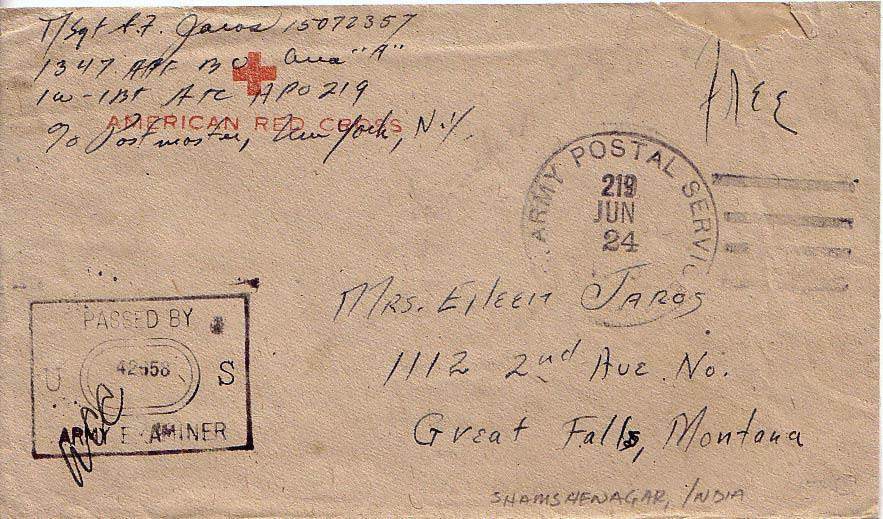 T/Sgt A.F. Jaros 15072357
1347 AAF BU Area "A"
APO 219
AMERICAN RED CROSS
% Postmaster, New York, N.Y.
Free
ARMY POSTAL SERVIC
219
JUN
24
Mrs. Eileen Jaros
1112 2nd Ave. No.
Great Falls, Montana
PASSED BY
U S
ARMY EXAMINER
SHAMSHENAGAR, INDIA